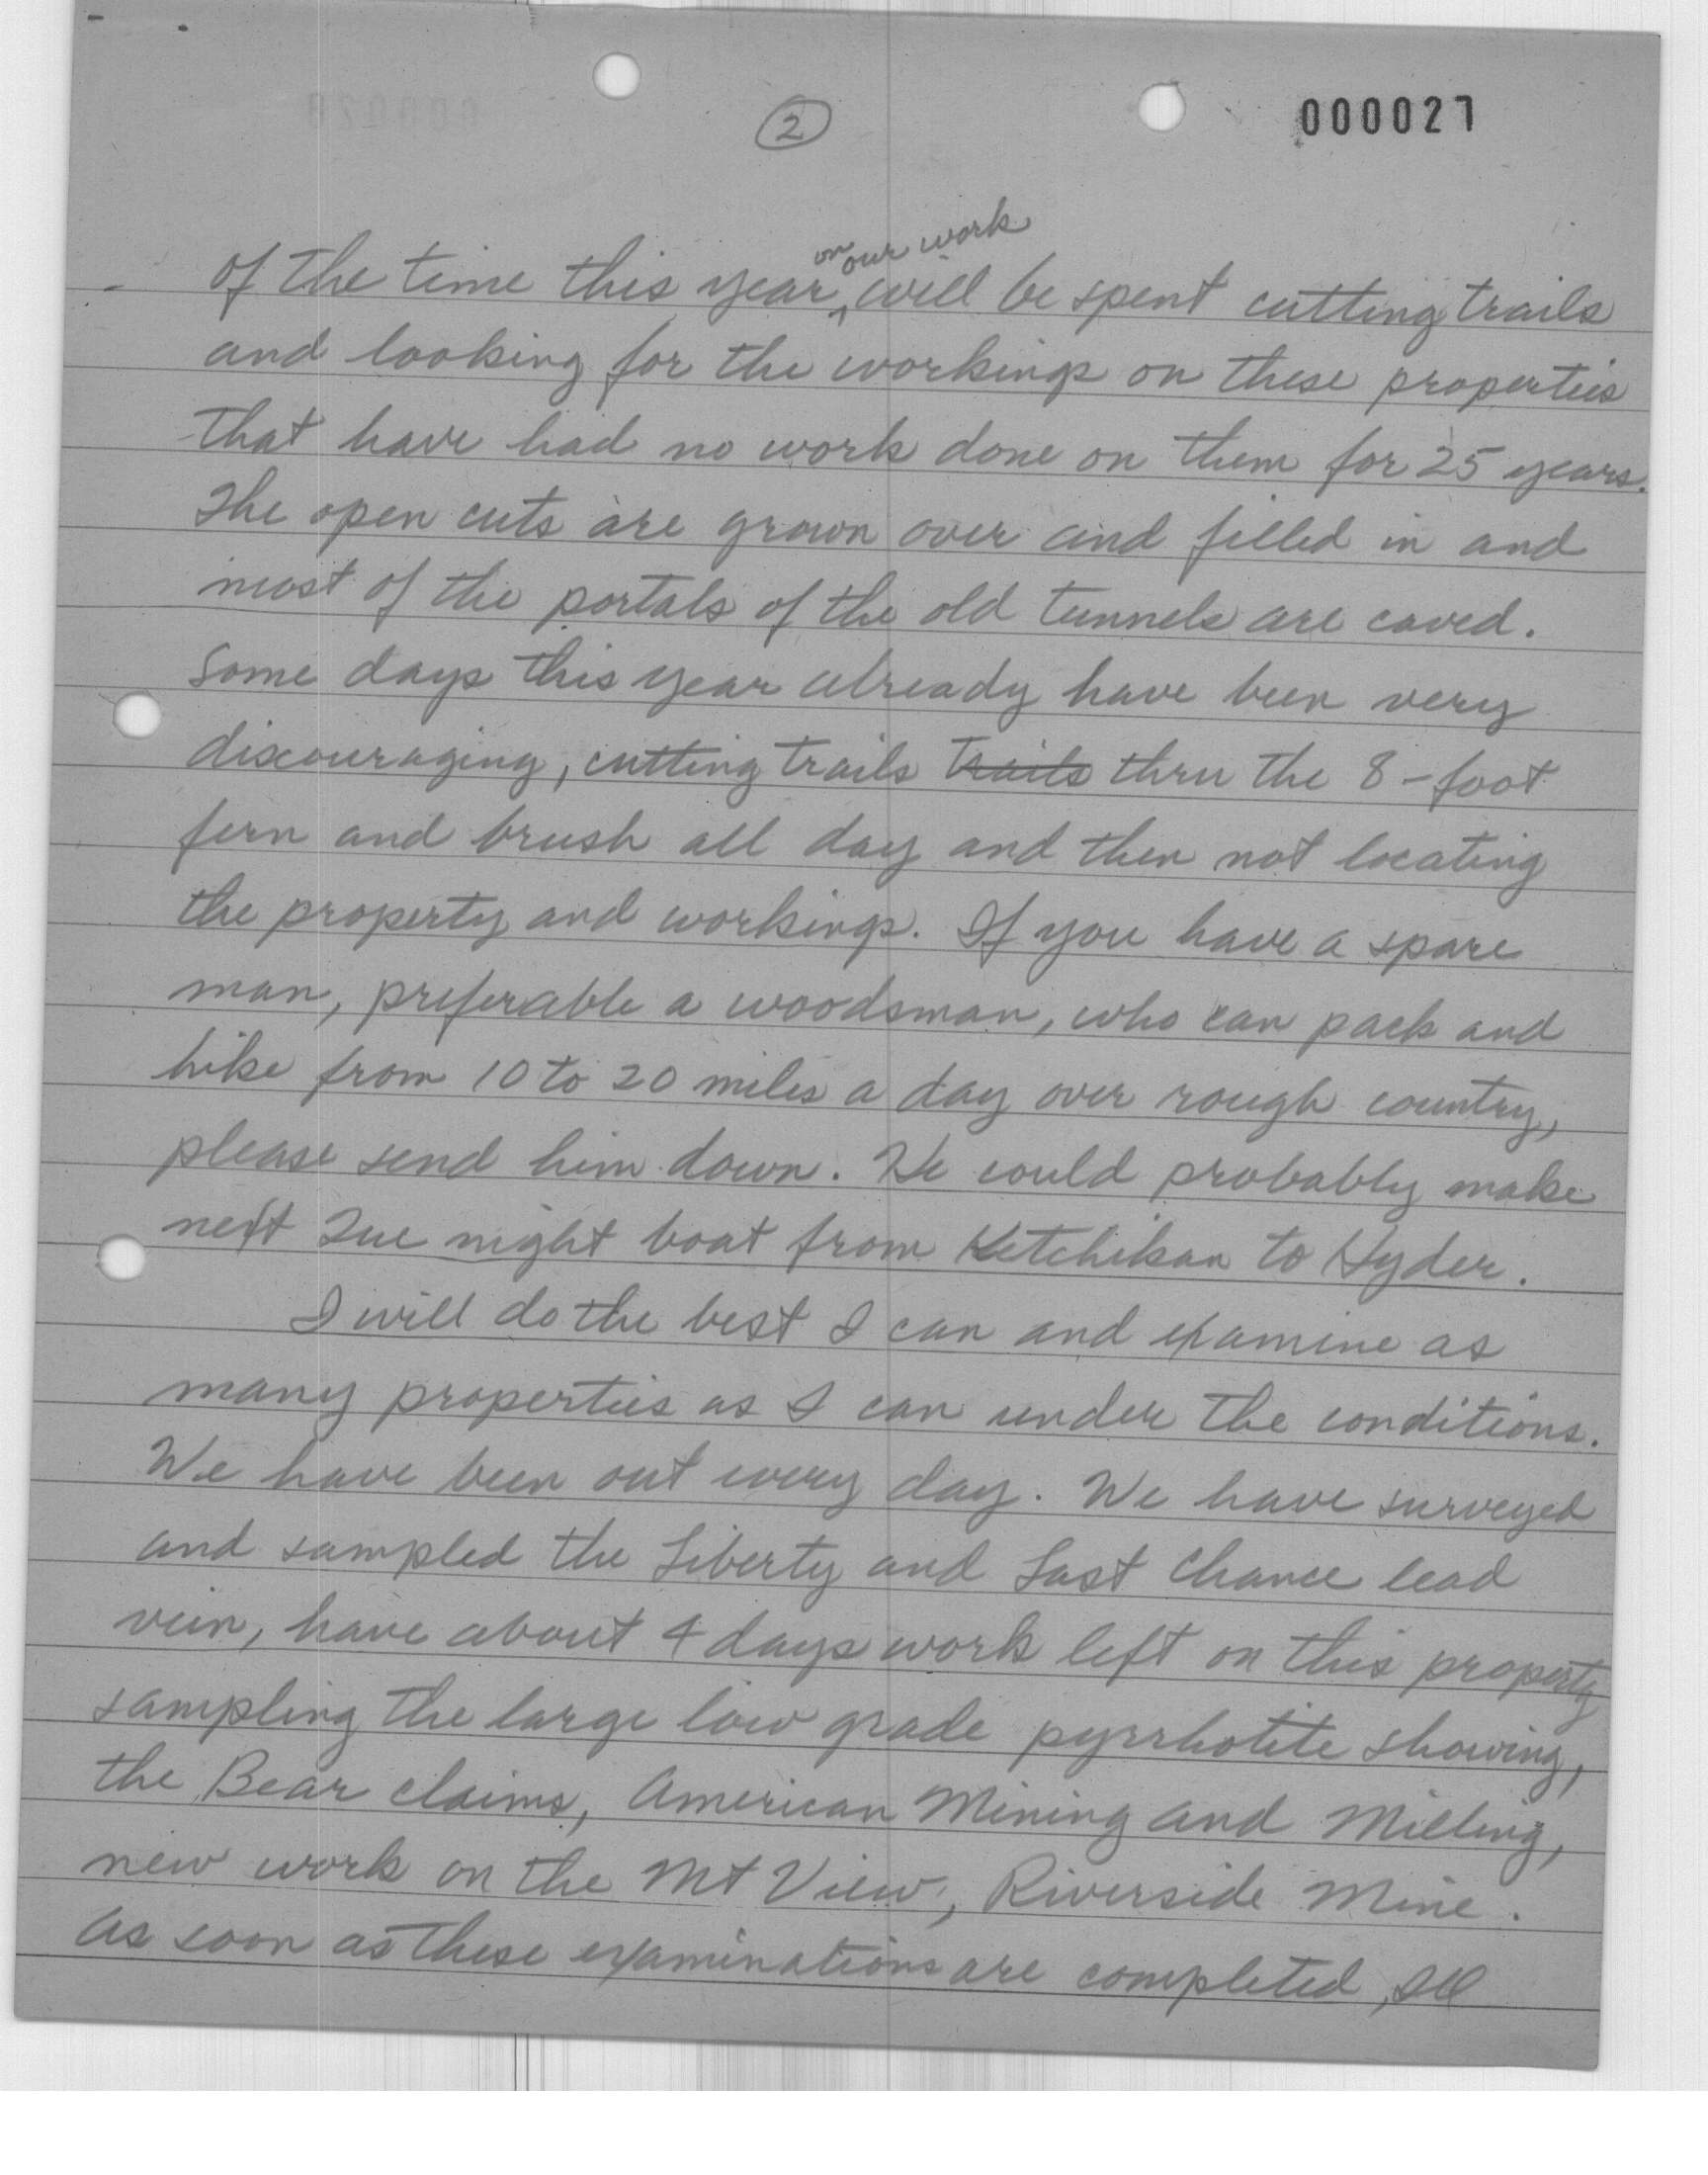 2
000027
of the time this year on our work will be spent cutting trails
and looking for the workings on these properties
that have had no work done on them for 25 years.
The open cuts are grown over and filled in and
most of the portals of the old tunnels are caved.
Some days this year already have been very
discouraging, cutting trails trails thru the 8-foot
fern and brush all day and then not locating
the property and workings. If you have a spare
man, preferable a woodsman, who can pack and
hike from 10 to 20 miles a day over rough country,
please send him down. He could probably make
next Tue night boat from Ketchikan to Hyder.
I will do the best I can and examine as
many properties as I can under the conditions.
We have been out every day. We have surveyed
and sampled the Liberty and Last Chance lead
vein, have about 4 days work left on this property
sampling the large low grade pyrrhotite showing,
the Bear claims, American Mining and Milling,
new work on the Mt View, Riverside Mine.
As soon as these examinations are completed, Ill